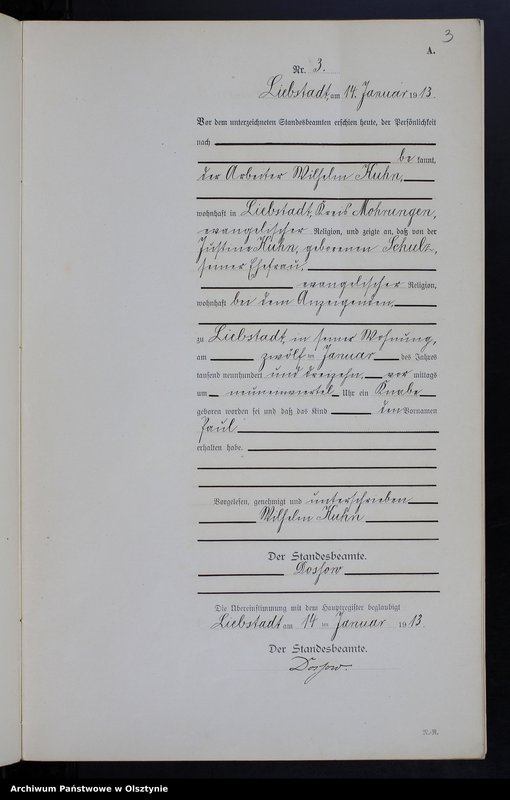 3
A.
Nr. 3.
Liebstadt, am 14. Januar 1913.
Vor dem unterzeichneten Standesbeamten erschien heute, der Persönlichkeit
nach
be kannt,
der Arbeiter Wilhelm Kuhn,
wohnhaft in Liebstadt, Kreis Mohrungen,
evangelischer Religion, und zeigte an, daß von der
Justine Kuhn, geborenen Schulz,
seiner Ehefrau,
evangelischer Religion,
wohnhaft bei dem Anzeigenden,
zu Liebstadt, in seiner Wohnung,
am zwölften Januar des Jahres
tausend neunhundert und dreizehn, vor mittags
um neuneinviertel Uhr ein Knabe
geboren worden sei und daß das Kind den Vornamen
Paul
erhalten habe.
Vorgelesen, genehmigt und unterschrieben
Wilhelm Kuhn
Der Standesbeamte.
Dossow
Die Übereinstimmung mit dem Hauptregister beglaubigt
Liebstadt am 14 ten Januar 1913.
Der Standesbeamte.
Dossow.
Archiwum Państwowe w Olsztynie